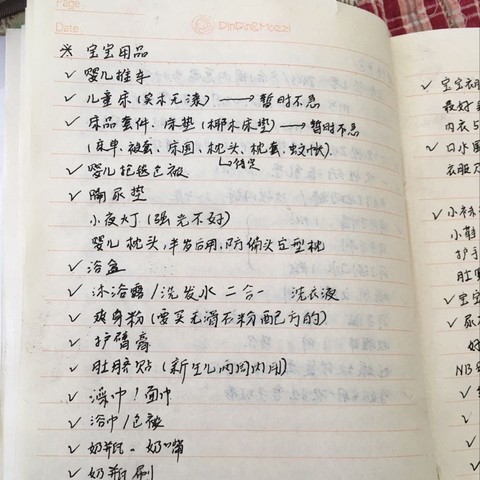 Page
Date
DinDingMoezzi
※ 宝宝用品
✓ 婴儿推车
✓ 儿童床(实木无漆) → 暂时不急
✓ 床品套件、床垫(椰木床垫) → 暂时不急
(床单、被套、床围、枕头、枕套、蚊帐)
✓ 婴儿抱毯包被
✓ 隔尿垫
小夜灯(强光不好)
婴儿枕头,半岁后用,防偏头定型枕
✓ 浴盆
✓ 沐浴露/洗发水 二合一 洗衣液
✓ 爽身粉(要买无滑石粉配方的)
✓ 护臀膏
✓ 肚脐贴(新生儿两周内用)
✓ 澡巾!面巾
✓ 浴巾/包被
✓ 奶瓶、奶嘴
✓ 奶瓶刷
✓ 宝宝衣
最好
内衣与
✓ 口水
衣服
小
护手
肚
✓ 宝宝
✓ 尿
好
NB